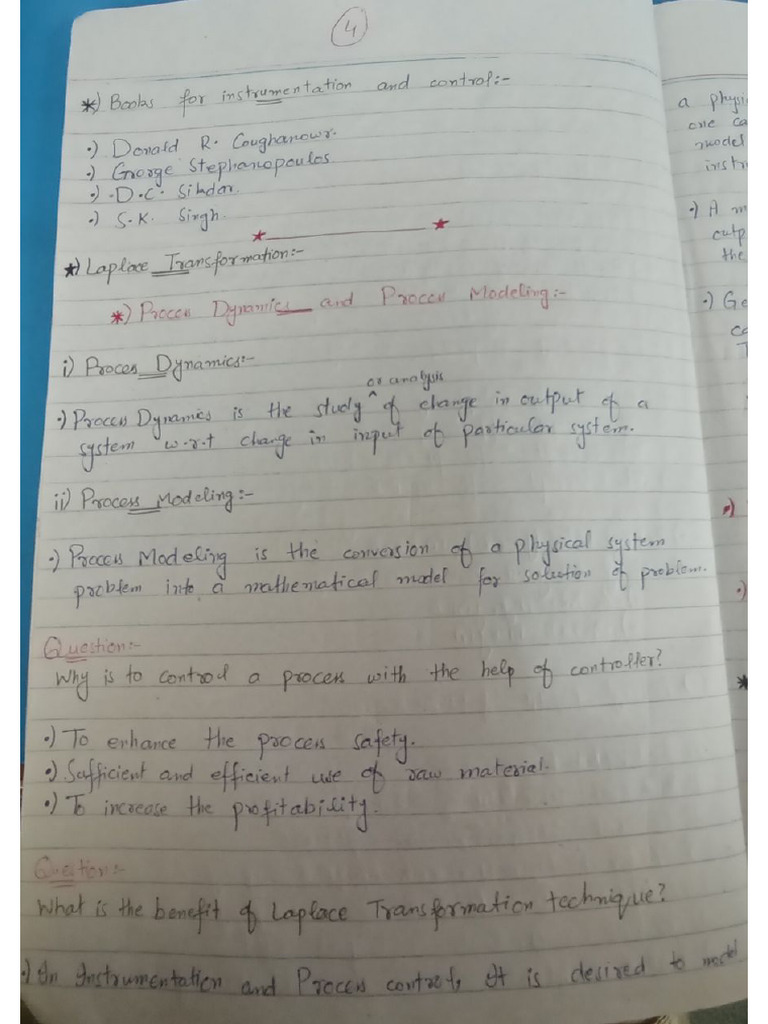 4
*) Books for instrumentation and control:-
•) Donald R. Coughanowr.
•) George Stephanopoulos
•) D.C. Sikdar.
•) S.K. Singh.
*) Laplace Transformation:-
*) Process Dynamics and Process Modeling:-
i) Process Dynamics:-
or analysis
•) Process Dynamics is the study ^ of change in output of a
system w.r.t change in input of particular system.
ii) Process Modeling:-
•) Process Modeling is the conversion of a physical system
problem into a mathematical model for solution of problem.
Question:-
Why is to control a process with the help of controller?
•) To enhance the process safety.
•) Sufficient and efficient use of raw material.
•) To increase the profitability.
Question:-
What is the benefit of Laplace Transformation technique?
•) In Instrumentation and Process control, It is desired to model
a physi
one ca
model
instr
•) A m
outp
the
•) Ge